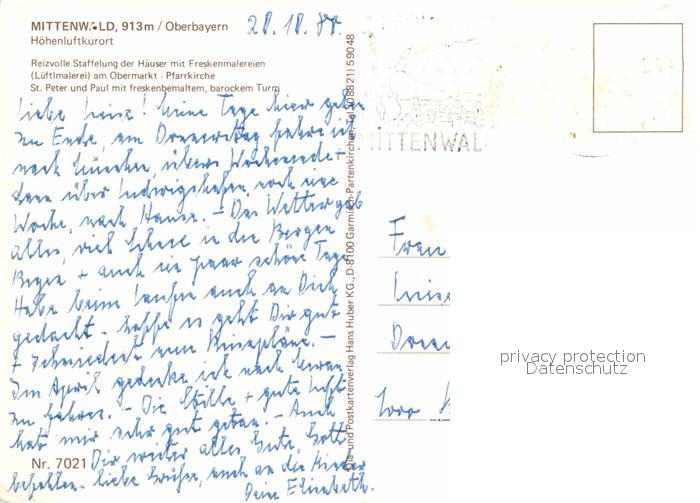 MITTENWALD, 913m / Oberbayern
Höhenluftkurort
28.10.88.
Reizvolle Staffelung der Häuser mit Freskenmalereien
(Lüftlmalerei) am Obermarkt · Pfarrkirche
St. Peter und Paul mit freskenbemaltem, barockem Turm
Liebe Luise! Meine Tage hier gehen
zu Ende, am Donnerstag fahre ich
nach München, übers Wochenende
dann über Ludwigshafen noch eine
Woche, nach Hause. – Das Wetter gab
alles, viel Schnee in die Bergen
Regen + auch ein paar schöne Tage
Habe beim Laufen auch an Dich
gedacht. hoffe es geht Dir gut
+ schmiedest neue Reisepläne. –
Im April gedenke ich nach
zu fahren. – Die Stille + gute Luft
hat mir sehr gut getan. – Auch
Dir weiter alles Gute, Gott
befohlen. liebe Grüße, auch an die Kinder
Deine Elisabeth.
Nr. 7021
Foto- und Postkartenverlag Hans Huber KG., D-8100 Garmisch-Partenkirchen, Tel. (08821) 59048
MITTENWAL
Frau
Luise
1000
privacy protection
Datenschutz